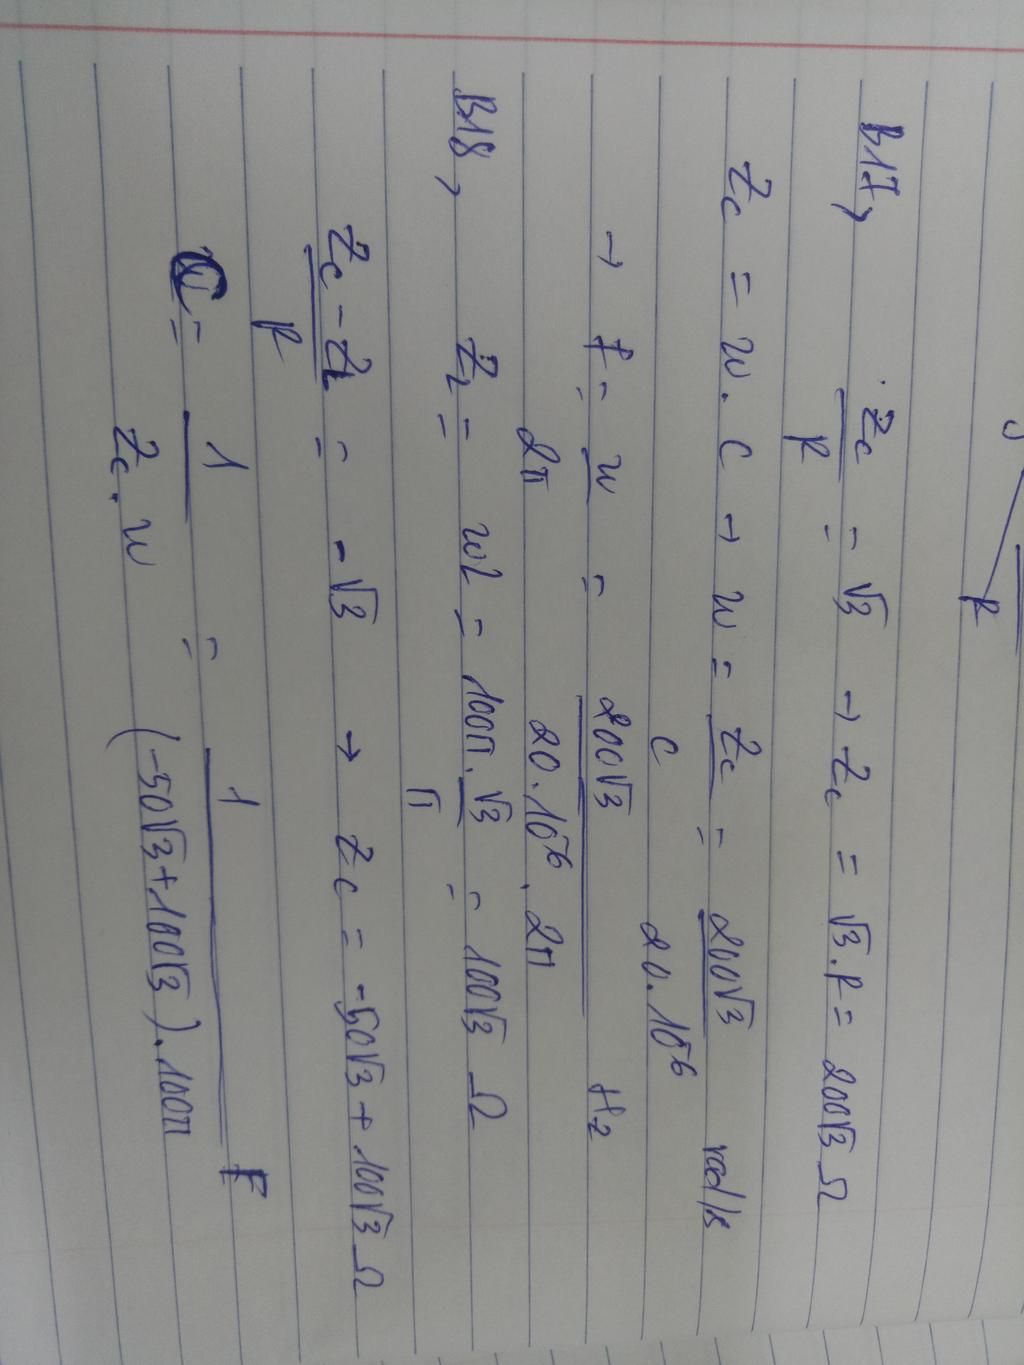 R
B17, Zc/R = √3 → Zc = √3.R = 200√3 Ω
Zc = w.C → w = Zc/C = 200√3/20.10^-6 rad/s
→ f = w/2π = 200√3/20.10^-6.2π Hz
B18, ZL = wL = 100π.√3/π = 100√3 Ω
Zc-ZL/R = -√3 → Zc = -50√3+100√3 Ω
C = 1/Zc.w = 1/(-50√3+100√3).100π F